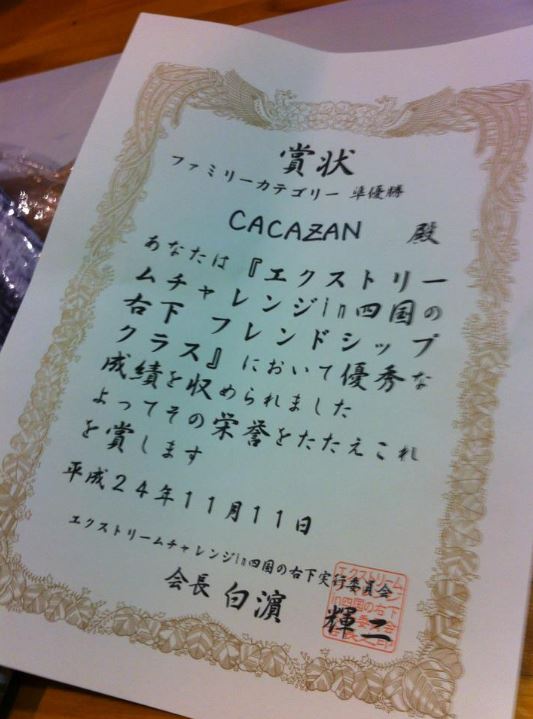 賞状
ファミリーカテゴリー 準優勝
CACAZAN 殿
あなたは『エクストリー
ムチャレンジin四国の
右下 フレンドシップ
クラス』において優秀な
成績を収められました
よってその栄誉をたたえこれ
を賞します
平成24年11月11日
エクストリームチャレンジin四国の右下実行委員会
会長 白濱 輝二
エクストリーム
in四国の右下